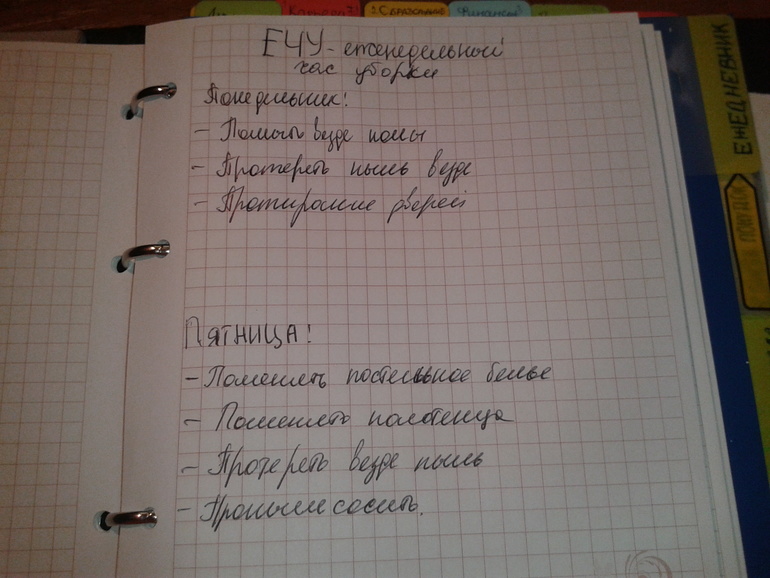 Образование
Финансы
ЕЧУ - еженедельный
час уборки
Понедельник!
- Помыть везде полы
- Протереть пыль везде
- Протирание дверей
ПЯТНИЦА!
- Поменять постельное белье
- Поменять полотенца
- Протереть везде пыль
- Пропылесосить.
ЕЖЕДНЕВНИК